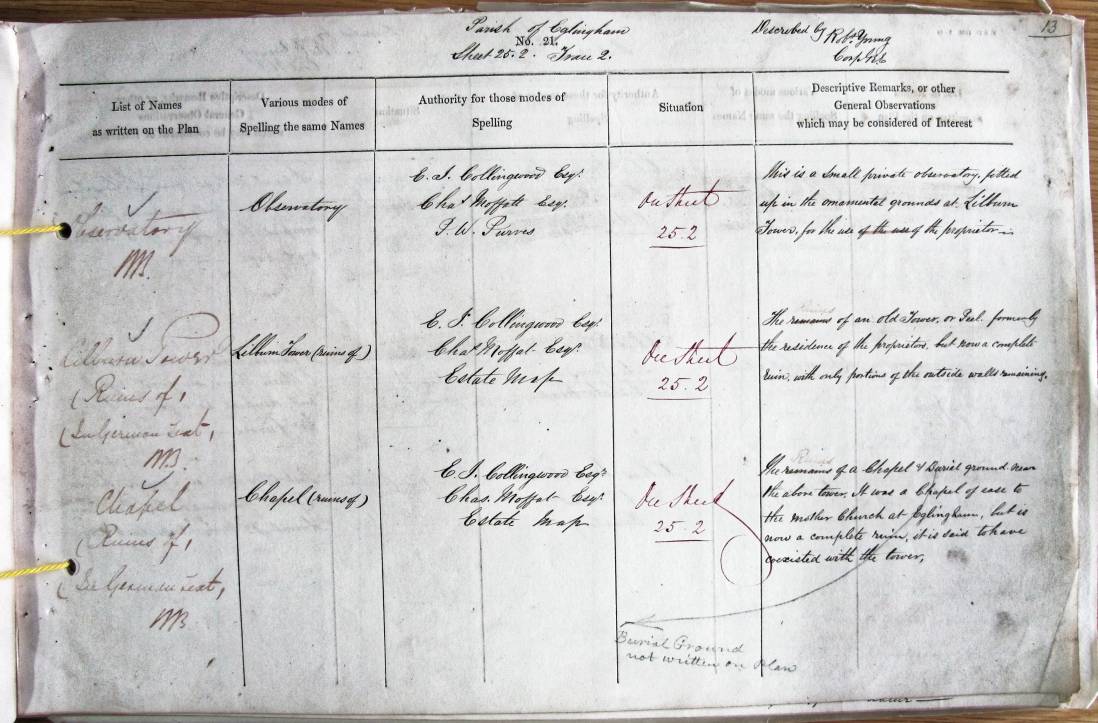 Parish of Eglingham
No. 21.
Sheet 25.2. Trace 2.
Described by Robt. Young
Corpl RE
13
List of Names
as written on the Plan
Various modes of
Spelling the same Names
Authority for those modes of
Spelling
Situation
Descriptive Remarks, or other
General Observations
which may be considered of Interest
Observatory
Observatory
E. J. Collingwood Esqr.
Chas Moffatt Esq.
T. W. Purves
On Sheet
25.2
This is a small private observatory, fitted
up in the ornamental grounds at Lilburn
Tower, for the use of the use of the proprietor
Lilburn Tower
(Ruins of)
(In German Text)
Lilburn Tower (ruins of)
E. J. Collingwood Esqr.
Chas Moffat Esqr.
Estate Map
On Sheet
25.2
Ruins
The remains of an old Tower, or Peel. formerly
the residence of the proprietors, but now a complete
ruin, with only portions of the outside walls remaining.
Chapel
(Ruins of)
(In German Text)
Chapel (ruins of)
E. J. Collingwood Esqr.
Chas. Moffat Esqr.
Estate Map
On Sheet
25.2
Ruins
The remains of a Chapel & Burial ground near
the above tower. It was a Chapel of ease to
the Mother Church at Eglingham, but is
now a complete ruin, it is said to have
coexisted with the tower.
Burial Ground
not written on Plan